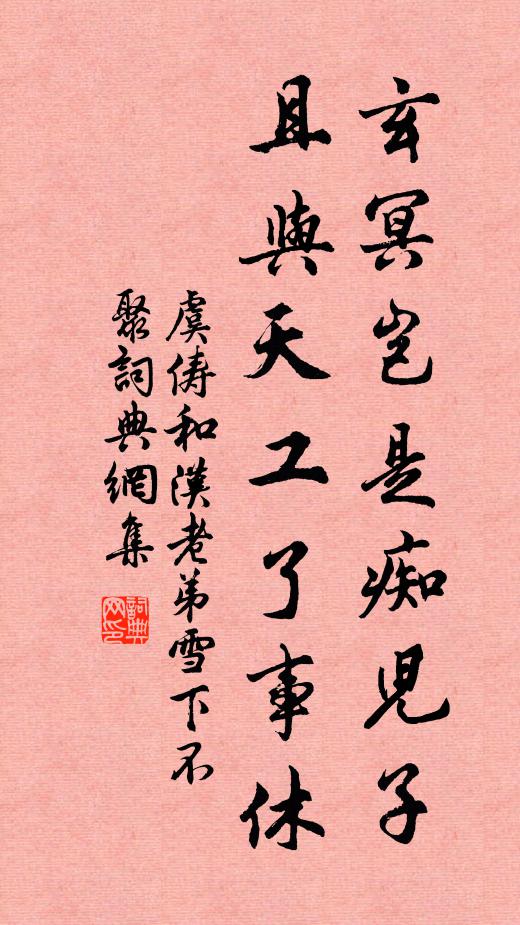 玄冥岂是痴兒子
且與天工了事休
虞儔和漢老弟雪下不
聚詞典網集
詞典
网印